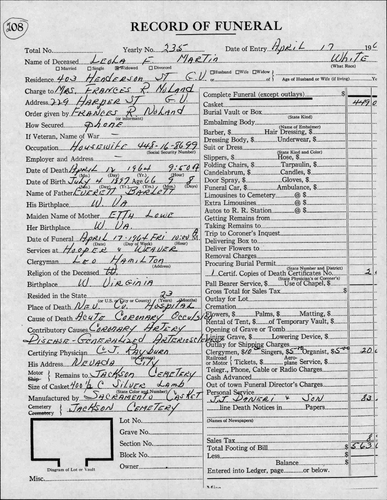 208
RECORD OF FUNERAL
Total No. Yearly No. 235 Date of Entry April 17 19
Name of Deceased Leola F. Martin White
Married Single Widowed Divorced (What Race)
Residence 403 Henderson St G.V. Husband Wife Widow Age of Husband or Wife (if living) Yrs
Charge to Mrs. Frances R Noland
Address 229 Harper St G.V.
Order given by Frances R Noland
How Secured Phone
If Veteran, Name of War
Occupation Housewife 448-16-8699
(Social Security Number)
Employer and Address
Date of Death April 12 1964 9:50 A
Date of Birth July 4 1897 Age 66 9 8
Name of Father Everett Barlett
His Birthplace W. Va
Maiden Name of Mother Etta Lowe
Her Birthplace W Va.
Date of Funeral April 17-1964 Fri 10 A
Services at Hooper & Weaver
Clergyman Leo Hamilton
Religion of the Deceased
Birthplace W. Virginia
Resided in the State 23
(or U.S. City or County)
Place of Death Nev. Co. Hospital
Cause of Death Acute Coronary Occlusion
Contributory Causes Coronary Artery
Disease-Generalized Arterioscler
Certifying Physician C-J Rayburn
His Address Nevada City
Motor Remains to Jackson Cemetery
Ship
Size of Casket 400 1/2 C Silver Lamb
Manufactured by Sacramento Casket
Cemetery Jackson Cemetery
Crematory
Lot No.
Grave No.
Section No.
Block No.
Owner
Diagram of Lot or Vault
Misc.
Complete Funeral (except outlays) $
Casket 449 0
Burial Vault or Box
(State Kind)
Embalming Body
(Name of Embalmer)
Barber, $ Hair Dressing, $
Dressing Body, $ Underwear, $
Suit or Dress
(State Kind and Color)
Slippers, $ Hose, $
Folding Chairs, $ Tarpaulin, $
Candelabrum, $ Candles, $
Door Spray, $ Gloves, $
Funeral Car, $ Ambulance, $
Limousines to Cemetery @ $
Extra Limousines @ $
Autos to R. R. Station @ $
Getting Remains from
Taking Remains to
Trip to Coroner's Inquest
Delivering Box to
Deliver Flowers to
Removal Charges
Procuring Burial Permit
(State Number and District)
1 Certif. Copies of Death Certificates No. 2
(State Physician's or Coroner's)
Pall Bearer Service, $ Use of Chapel, $
Gross Total for Sales Tax $
Outlay for Lot
Cremation
Flowers, $ Palms, $ Matting, $
Rental of Tent, $ of Temporary Vault, $
Opening of Grave or Tomb
Lining Grave, $ Lowering Device, $
Outlay for Shipping Charges
Clergyman, $10 Singer, $5 Organist, $5 20 0
or Motor Tickets, $ plane Service, $
Telegr., Phone, Cable or Radio Charges
Cash Advanced
Out of town Funeral Director's Charges
Personal Service
J.J. Daneri & Son 82
line Death Notices in Papers
(Names of Newspapers)
Sales Tax $ 8
Total Footing of Bill $ 563
Less $
Balance $
Entered into Ledger, page or below.